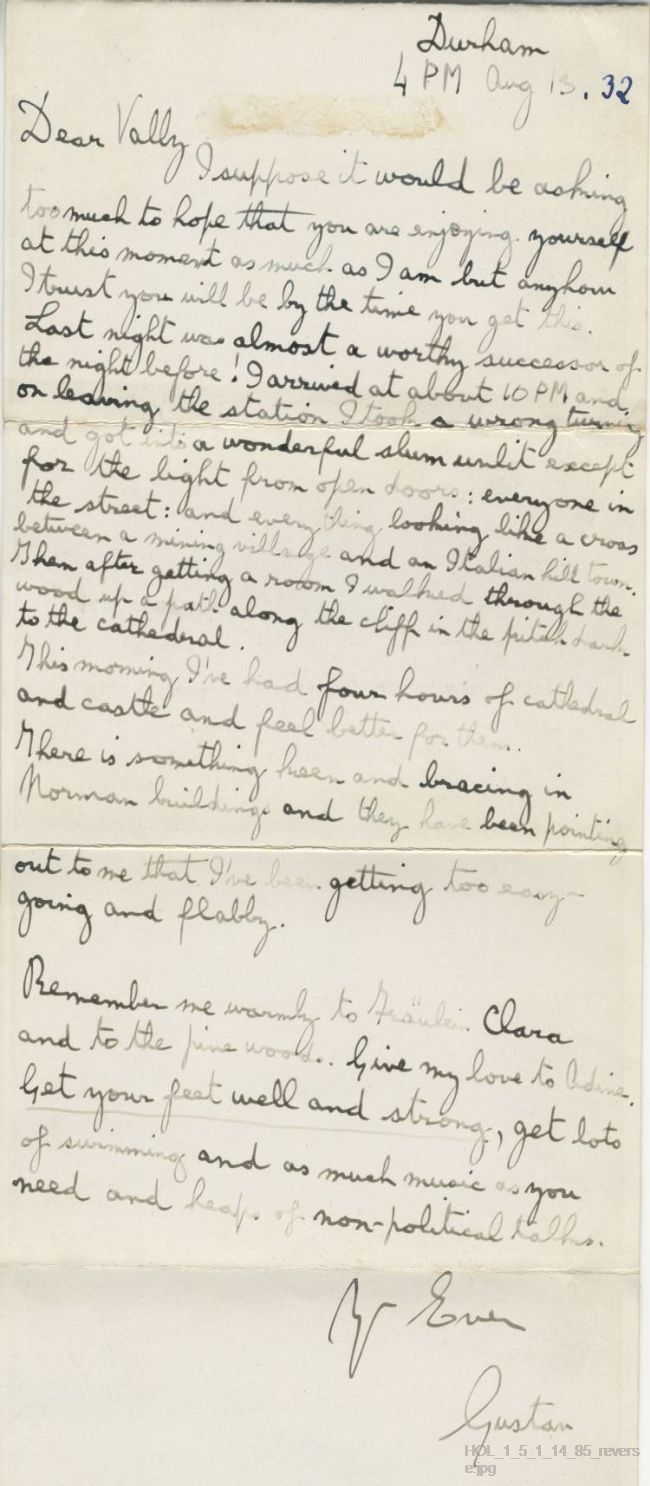 Durham
4 PM Aug 13. 32
Dear Vally
I suppose it would be asking
too much to hope that you are enjoying yourself
at this moment as much as I am but anyhow
I trust you will be by the time you get this.
Last night was almost a worthy successor of
the night before! I arrived at about 10 PM and
on leaving the station I took a wrong turning
and got into a wonderful slum unlit except
for the light from open doors: everyone in
the street: and everything looking like a cross
between a mining village and an Italian hill town.
Then after getting a room I walked through the
wood up a path along the cliff in the pitch dark
to the cathedral.
This morning I've had four hours of cathedral
and castle and feel better for them.
There is something keen and bracing in
Norman buildings and they have been pointing
out to me that I've been getting too easy-
going and flabby.
Remember me warmly to Fräulein Clara
and to the pine woods.. Give my love to Adine.
Get your feet well and strong, get lots
of swimming and as much music as you
need and heaps of non-political talks.
Yr Ever
Gustav
HOL_1_5_1_14_85_revers
e.jpg